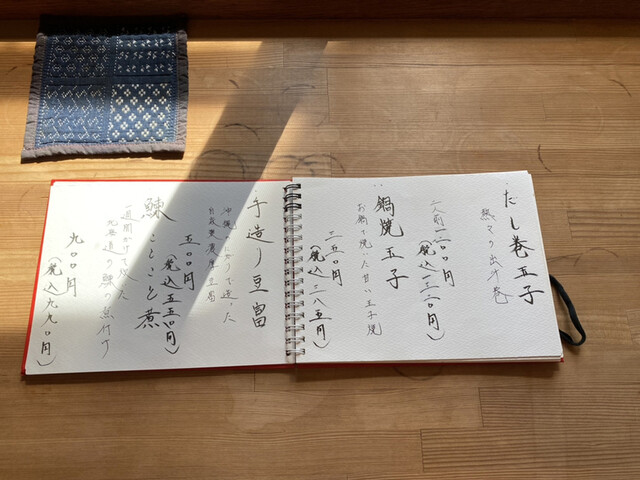 だし巻玉子
熱々の出汁巻
二人前一二〇〇円
(税込一三二〇円)
鍋焼玉子
お鍋で焼いた甘い玉子焼
三五〇〇円
(税込三八五〇円)
手造り豆富
沖縄のにがりで造った
自家製濃厚豆富
五〇〇円
(税込五五〇円)
鰊ことこと煮
一週間かけて炊いた
北海道の鰊の煮付け
九〇〇円
(税込九九〇円)